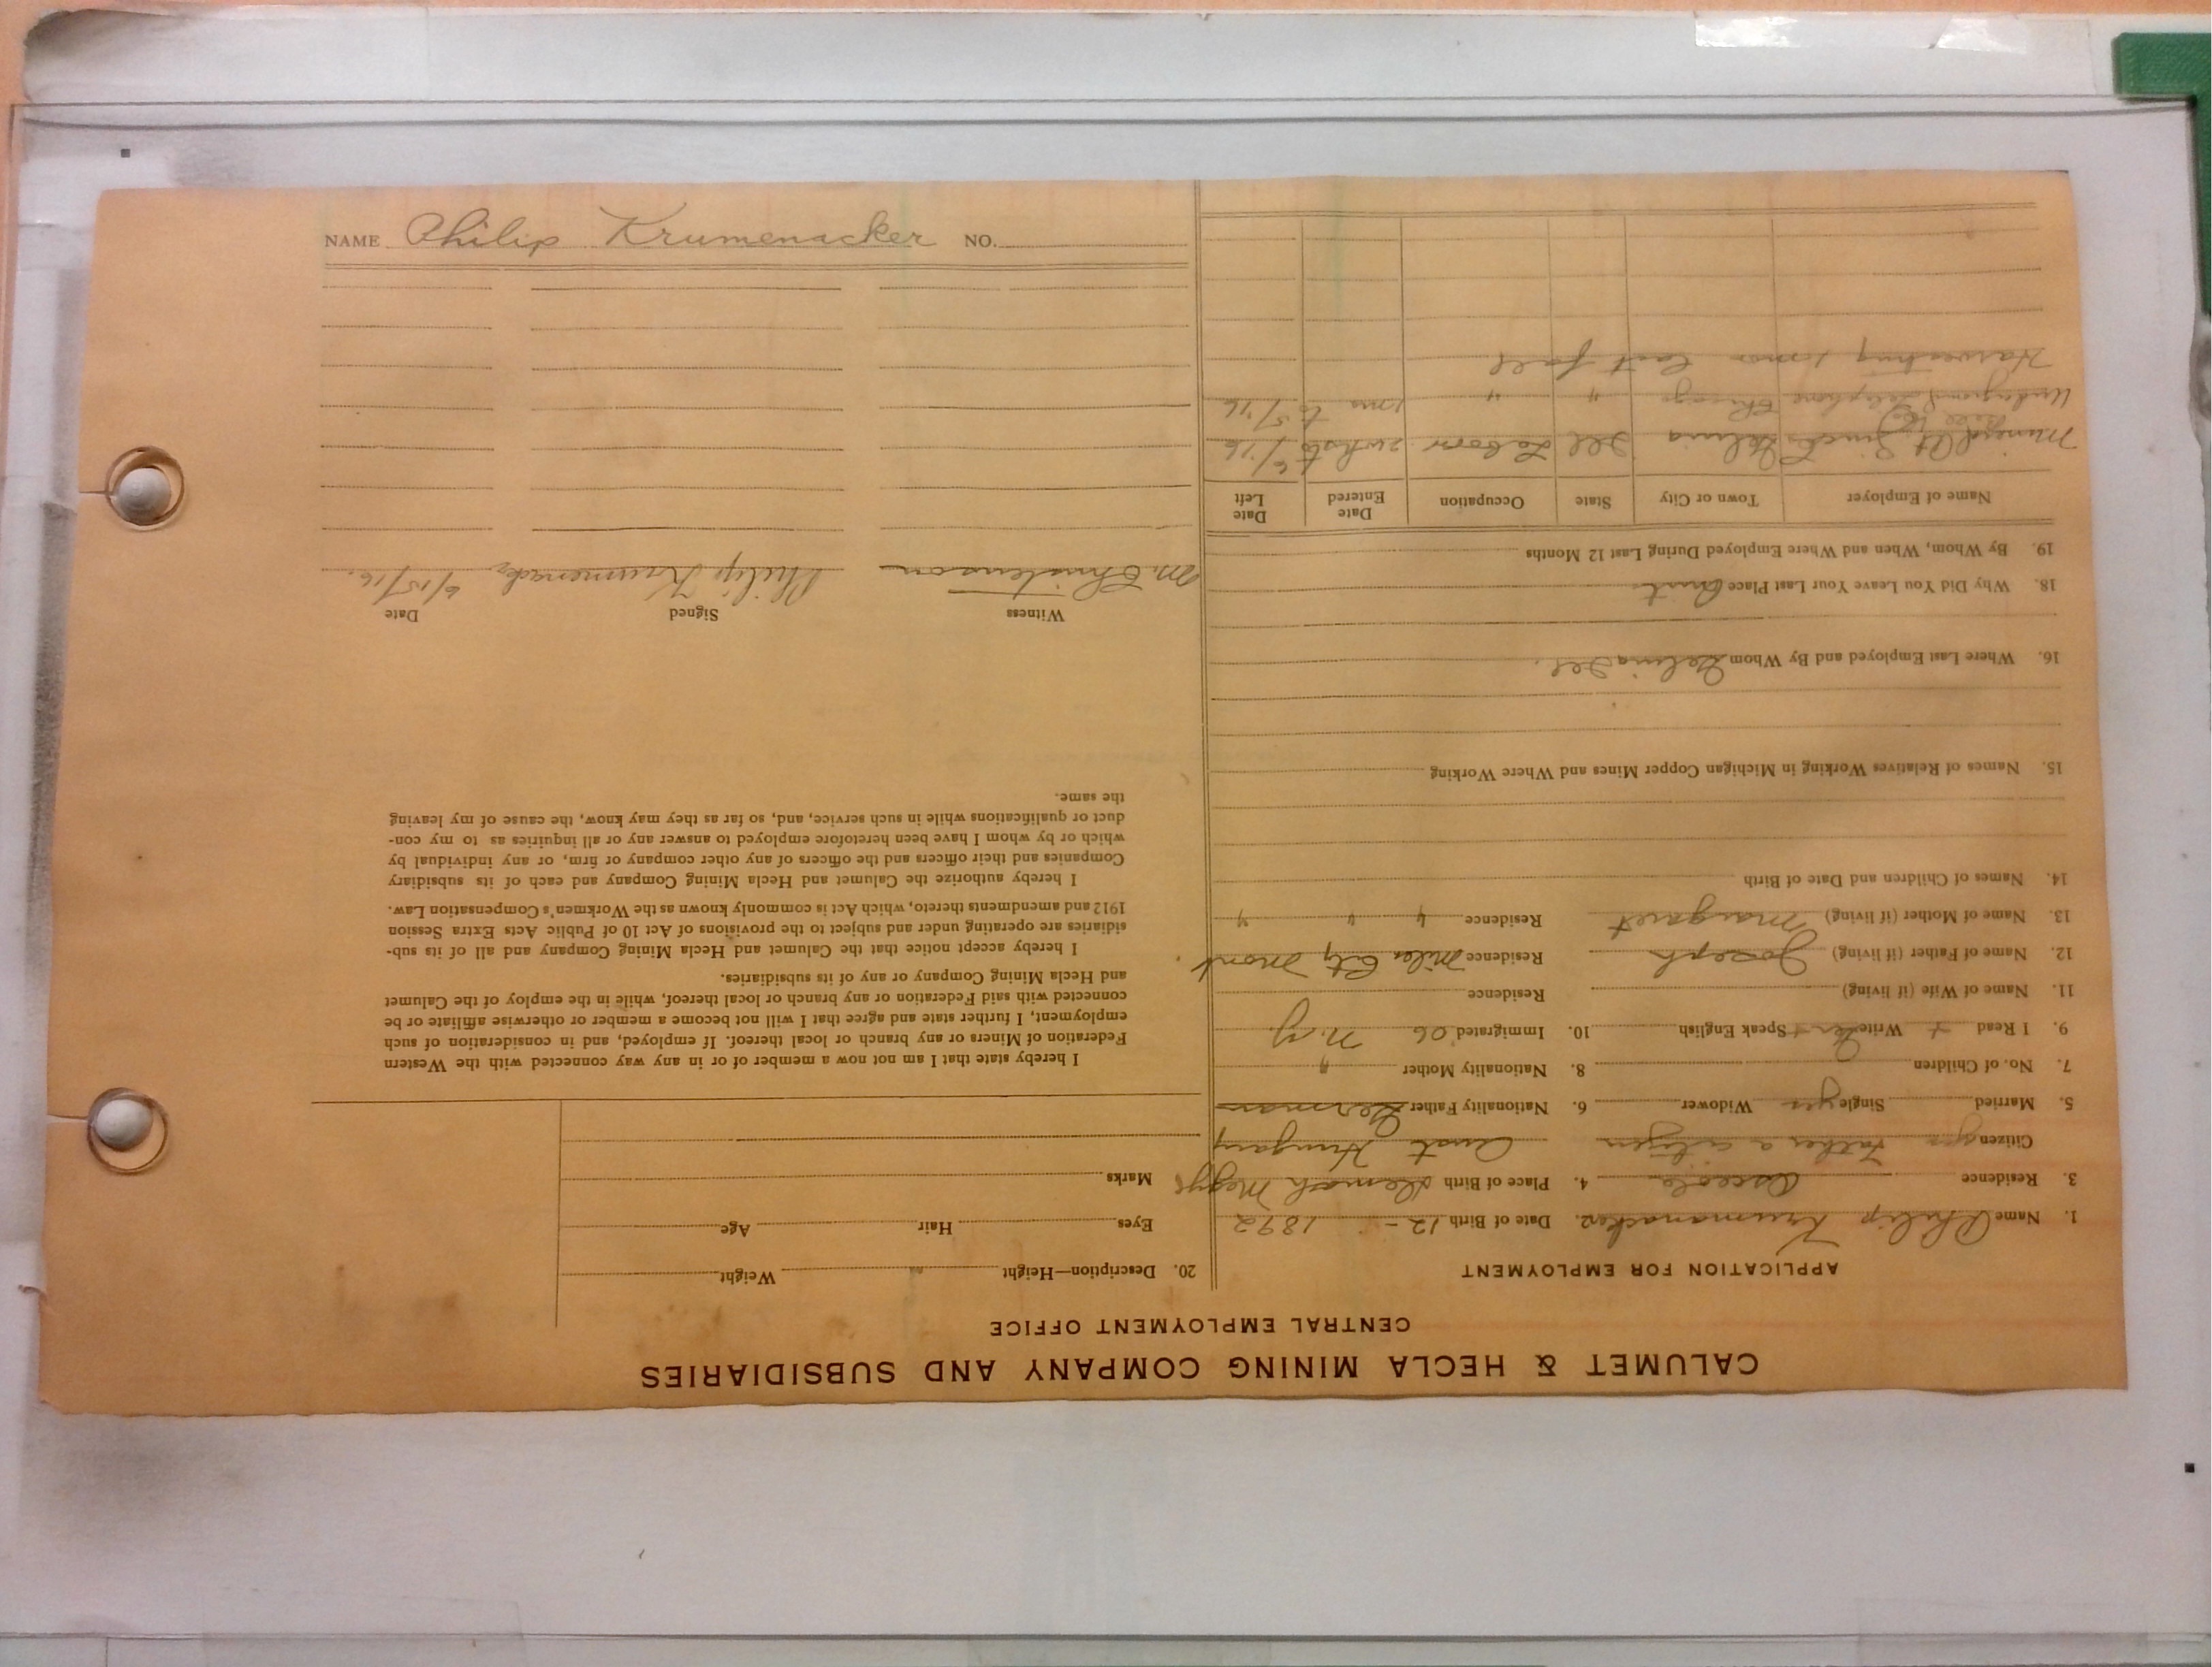 NAME Philip Krumenacker NO.
CALUMET & HECLA MINING COMPANY AND SUBSIDIARIES
CENTRAL EMPLOYMENT OFFICE
APPLICATION FOR EMPLOYMENT
1. Name Philip Krumanacker 2. Date of Birth 12 - 1892
3. Residence Osceola 4. Place of Birth
Citizen yes Father a citizen Aust Hungary
5. Married Single yes Widower 6. Nationality Father German
7. No. of Children 8. Nationality Mother "
9. I Read + Write + Speak English 10. Immigrated '06 N.Y.
11. Name of Wife (if living) Residence
12. Name of Father (if living) Joseph Residence Miles City Mont.
13. Name of Mother (if living) Margaret Residence " " "
14. Names of Children and Date of Birth
15. Names of Relatives Working in Michigan Copper Mines and Where Working
16. Where Last Employed and By Whom Galina Ill.
18. Why Did You Leave Your Last Place Quit
19. By Whom, When and Where Employed During Last 12 Months
Name of Employer Town or City State Occupation Date Entered Date Left
Mineral Pt Zinc Co Galina Ill Labor 2 wks to 6/16
Underground Telephone Chicago " " 1 mo to 5/16
Harvesting 1 mo last fall
20. Description—Height Weight
Eyes Hair Age
Marks
I hereby state that I am not now a member of or in any way connected with the Western
Federation of Miners or any branch or local thereof. If employed, and in consideration of such
employment, I further state and agree that I will not become a member or otherwise affiliate or be
connected with said Federation or any branch or local thereof, while in the employ of the Calumet
and Hecla Mining Company or any of its subsidiaries.
I hereby accept notice that the Calumet and Hecla Mining Company and all of its sub-
sidiaries are operating under and subject to the provisions of Act 10 of Public Acts Extra Session
1912 and amendments thereto, which Act is commonly known as the Workmen's Compensation Law.
I hereby authorize the Calumet and Hecla Mining Company and each of its subsidiary
Companies and their officers and the officers of any other company or firm, or any individual by
which or by whom I have been heretofore employed to answer any or all inquiries as to my con-
duct or qualifications while in such service, and, so far as they may know, the cause of my leaving
the same.
Witness Signed Date
M. Christenson Philip Krumenacker 6/15/16.